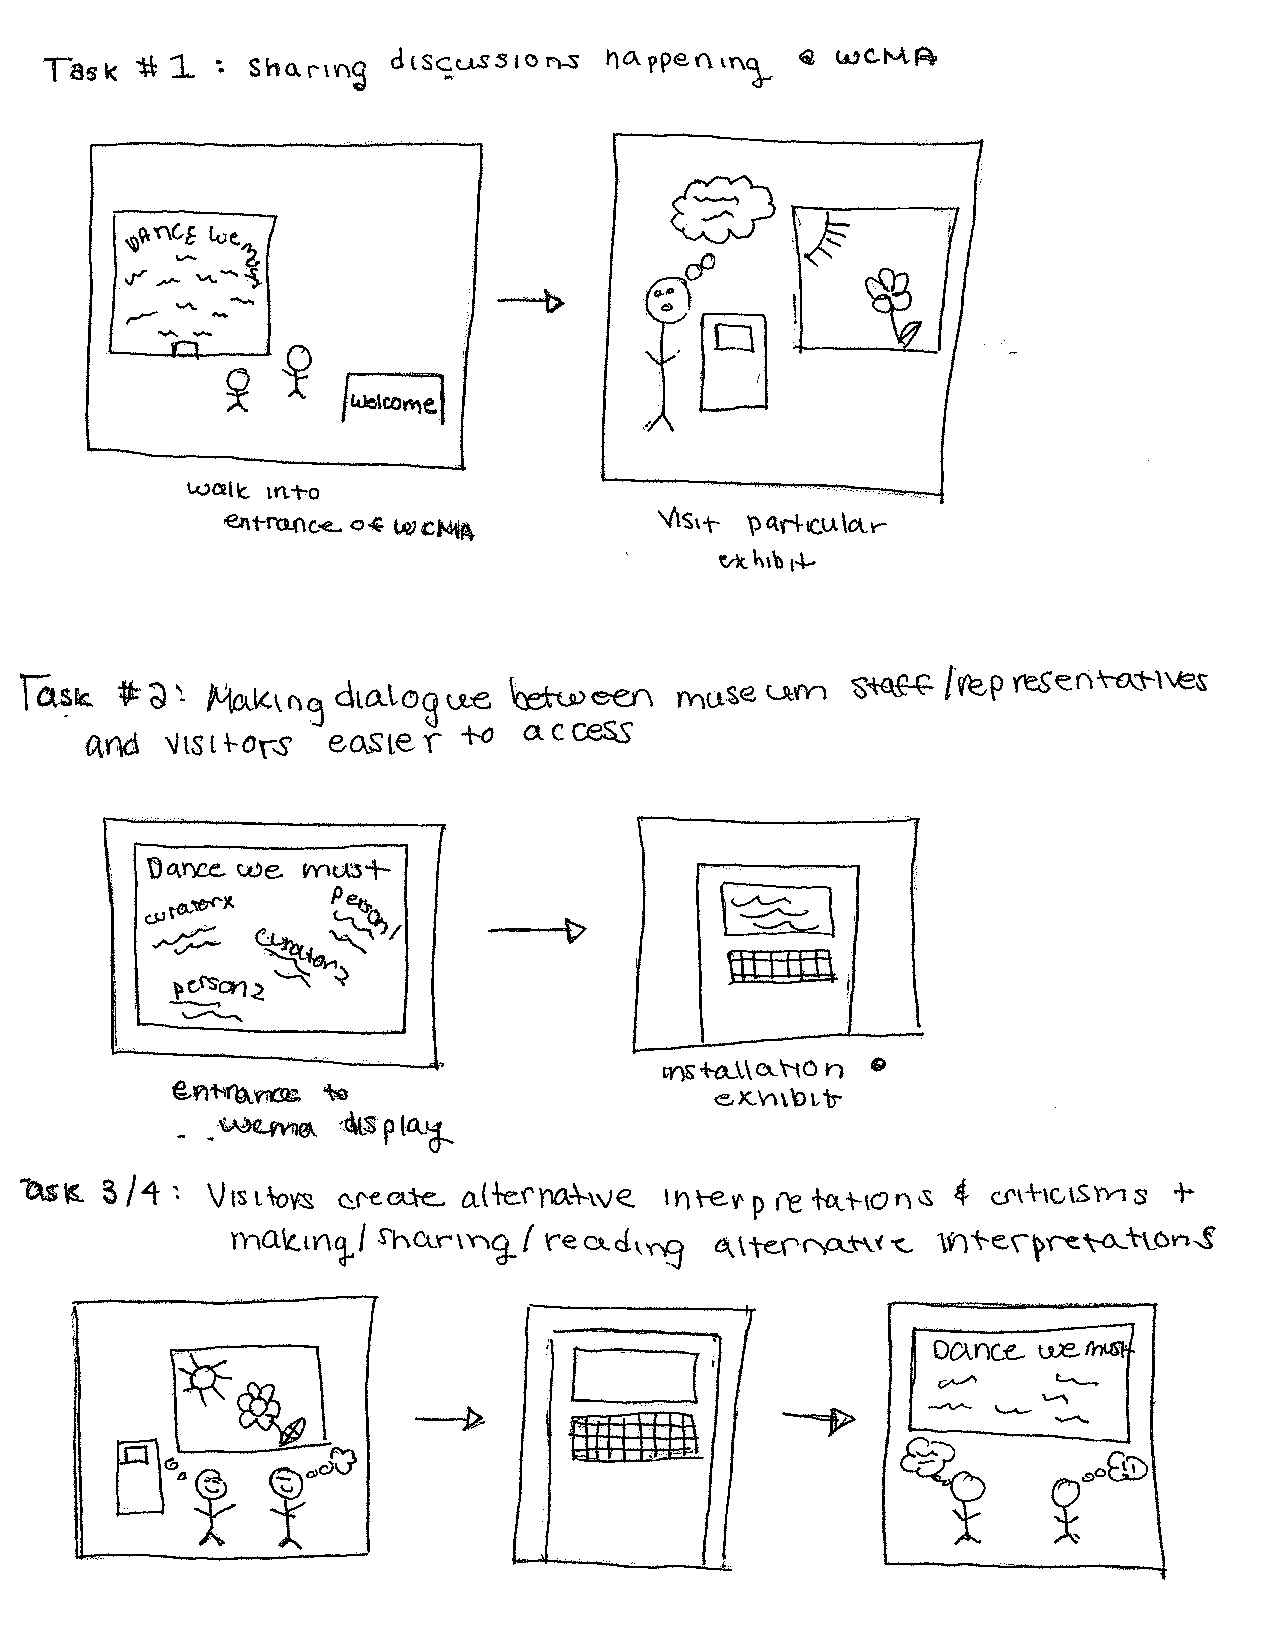 Task #1: sharing discussions happening @ WCMA
DANCE we must
welcome
walk into
entrance of WCMA
Visit particular
exhibit
Task #2: Making dialogue between museum staff/representatives
and visitors easier to access
Dance we must
curator x
person 1
curator 2
person 2
entrance to
wcma display
installation @
exhibit
Task 3/4: Visitors create alternative interpretations & criticisms +
making/sharing/reading alternative interpretations
Dance we must